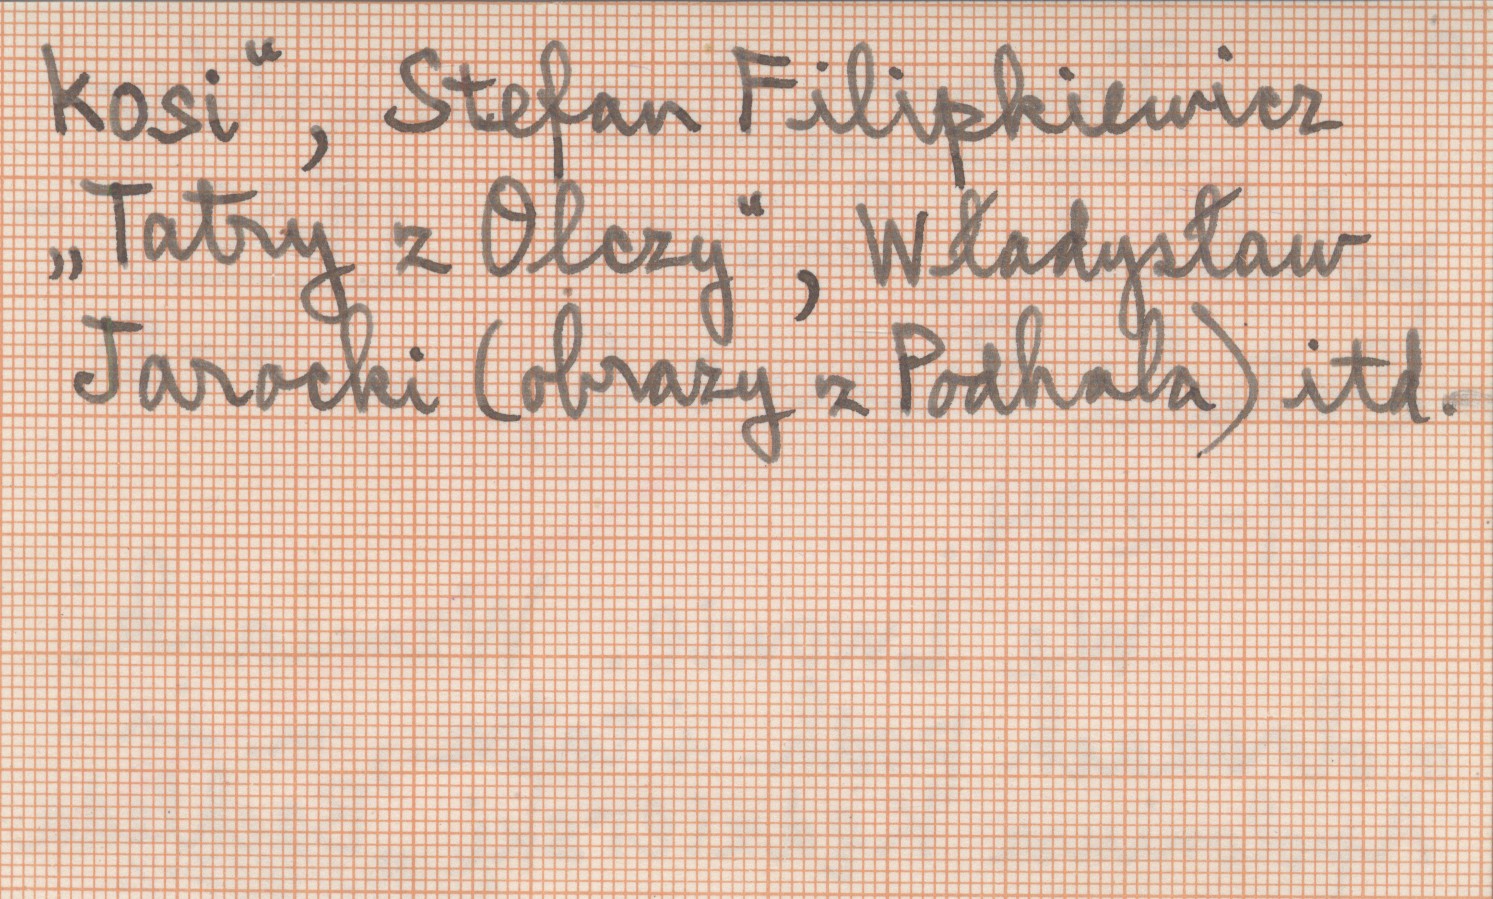 kosi“, Stefan Filipkiewicz
„Tatry z Olczy“, Władysław
Jarocki (obrazy z Podhala) itd.